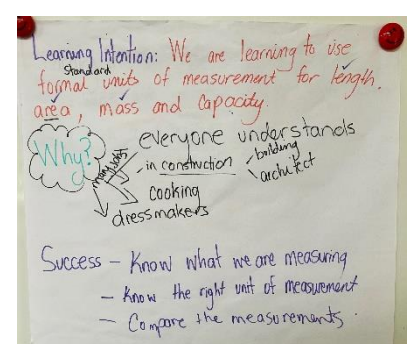 Learning Intention: We are learning to use
Standard
formal units of measurement for length,
area, mass and capacity.
Why?
everyone understands
many jobs
in construction
building
architect
cooking
dressmakers
Success - Know what we are measuring
- Know the right unit of measurement
- Compare the measurements.